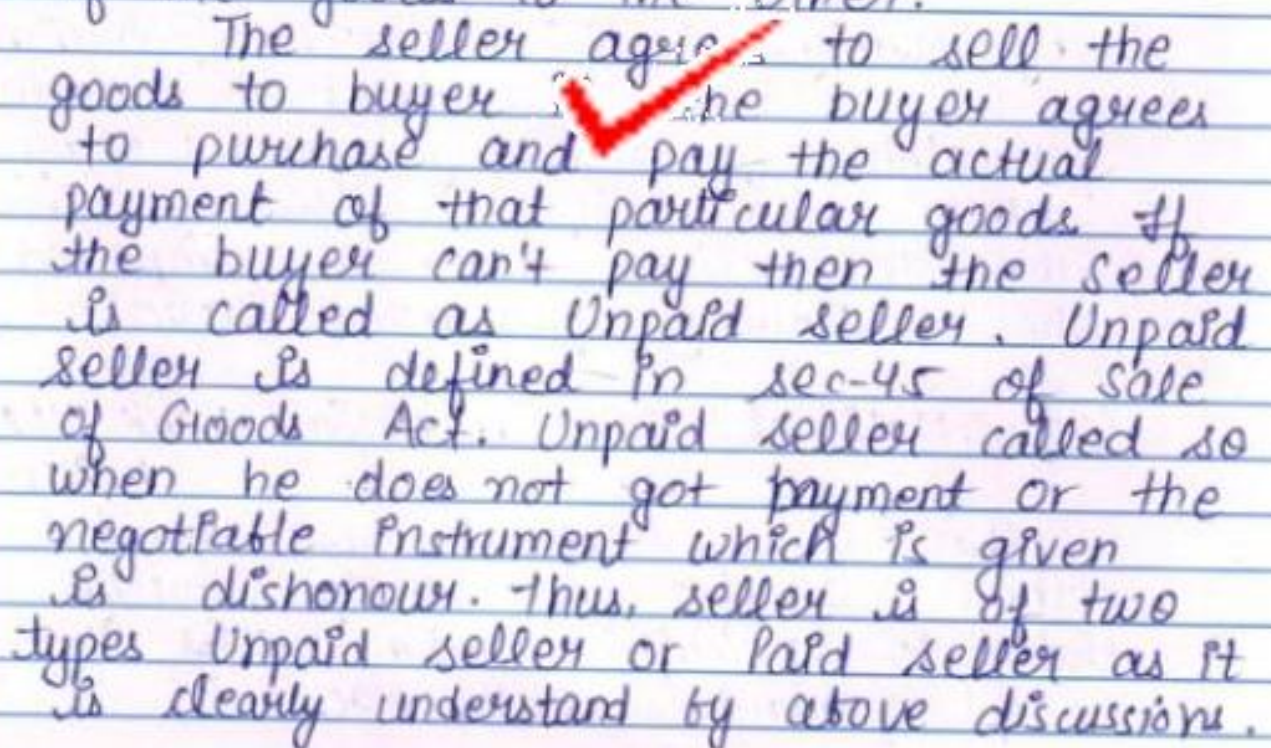 The seller to sell the
goods to buyer buyer agrees
to purchase and pay the actual
payment of that particular goods. If
the buyer can't pay then the seller
is called as Unpaid seller. Unpaid
seller is defined in sec-45 of Sale
of Goods Act. Unpaid seller called so
when he does not got payment or the
negotiable instrument which is given
is dishonour. Thus, seller is of two
types Unpaid seller or Paid seller as it
is clearly understand by above discussions.